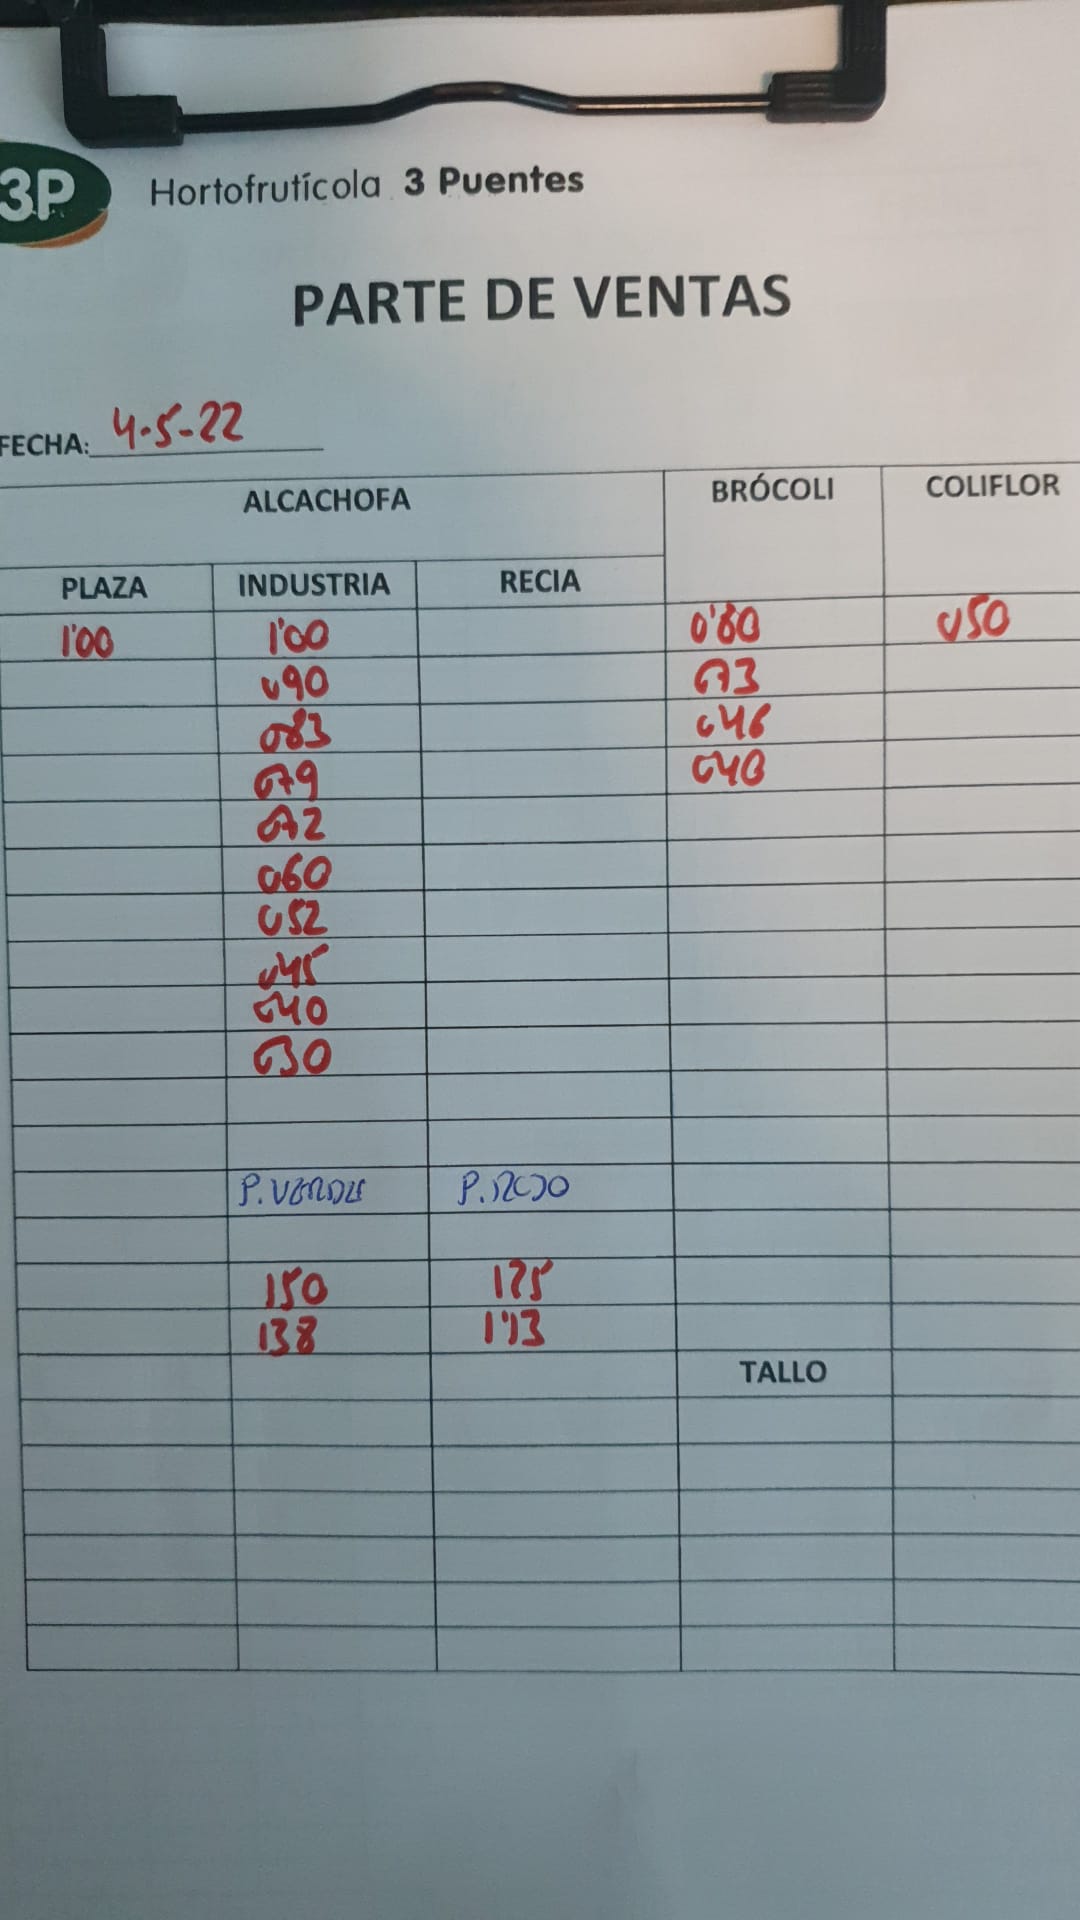 3P Hortofrutícola 3 Puentes
PARTE DE VENTAS
FECHA: 4-5-22
ALCACHOFA BRÓCOLI COLIFLOR
PLAZA INDUSTRIA RECIA
1'00 1'00 0'80 050
090 073
083 046
079 040
072
060
052
045
040
030
P.VERDE P.ROJO
150 175
138 1'13
TALLO